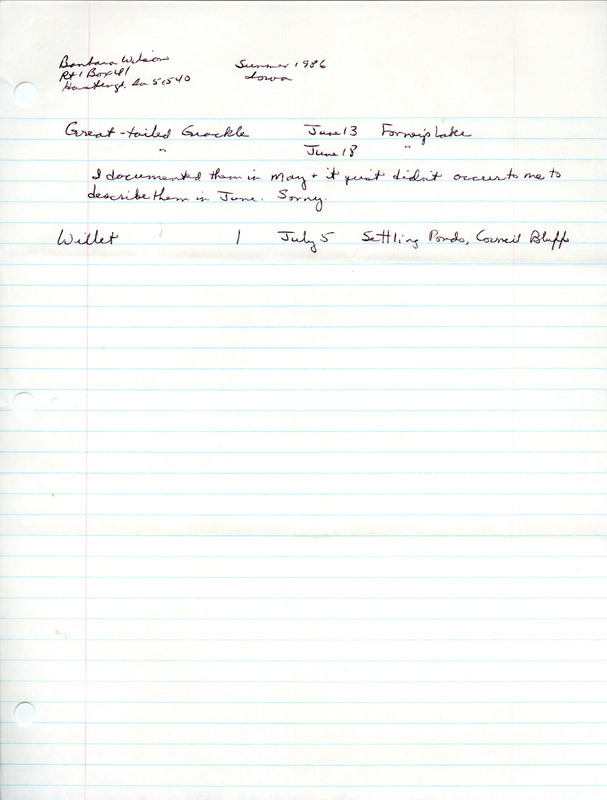 Barbara Wilson Summer 1986
Rt 1 Box 41 Iowa
Hastings, Ia 51540
Great-tailed Grackle June 13 Forney's Lake
" June 18 "
I documented them in May + it just didn't occur to me to
describe them in June. Sorry.
Willet 1 July 5 Settling Ponds, Council Bluffs